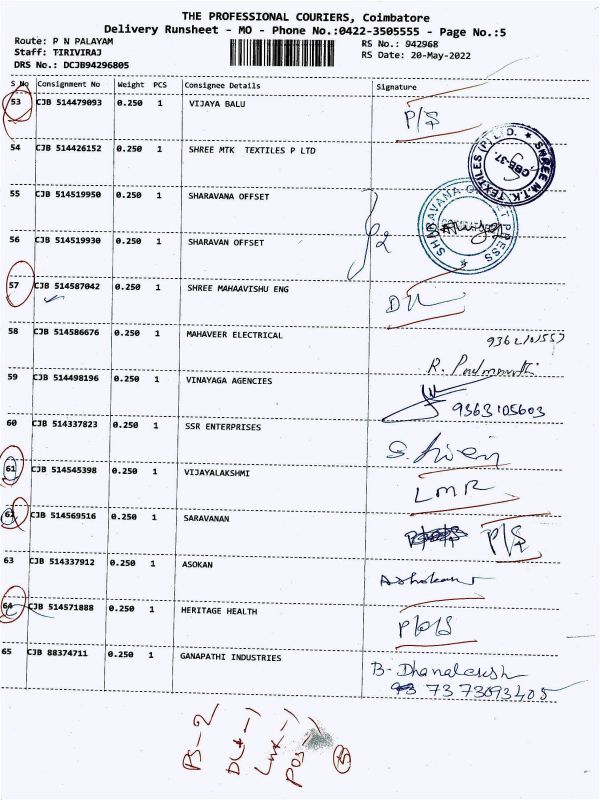 THE PROFESSIONAL COURIERS, Coimbatore
Delivery Runsheet - MO - Phone No.:0422-3505555 - Page No.:5
Route: P N PALAYAM
Staff: TIRIVIRAJ
DRS No.: DCJB94296805
RS No.: 942968
RS Date: 20-May-2022
S No Consignment No Weight PCS Consignee Details Signature
53 CJB 514479093 0.250 1 VIJAYA BALU P/S
54 CJB 514426152 0.250 1 SHREE MTK TEXTILES P LTD SHREE M.T.K. TEXTILES (P) LTD. CBE-37.
55 CJB 514519950 0.250 1 SHARAVANA OFFSET
56 CJB 514519930 0.250 1 SHARAVAN OFFSET 2 SHARAVANA PRESS
57 CJB 514587042 0.250 1 SHREE MAHAAVISHU ENG DL
58 CJB 514586676 0.250 1 MAHAVEER ELECTRICAL R.
59 CJB 514498196 0.250 1 VINAYAGA AGENCIES 9363105603
60 CJB 514337823 0.250 1 SSR ENTERPRISES
61 CJB 514545398 0.250 1 VIJAYALAKSHMI LMR
62 CJB 514569516 0.250 1 SARAVANAN P/S
63 CJB 514337912 0.250 1 ASOKAN
64 CJB 514571888 0.250 1 HERITAGE HEALTH
65 CJB 88374711 0.250 1 GANAPATHI INDUSTRIES B-
7373093405
PS-2